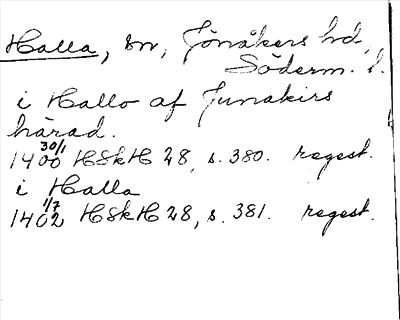 Halla, sn, Jönåkers hd,
Söderm. l.
i Hallo af Junakirs
härad.
1400 30/1 HSkH 28, s. 380. regest.
i Halla
1402 1/7 HSkH 28, s. 381. regest.